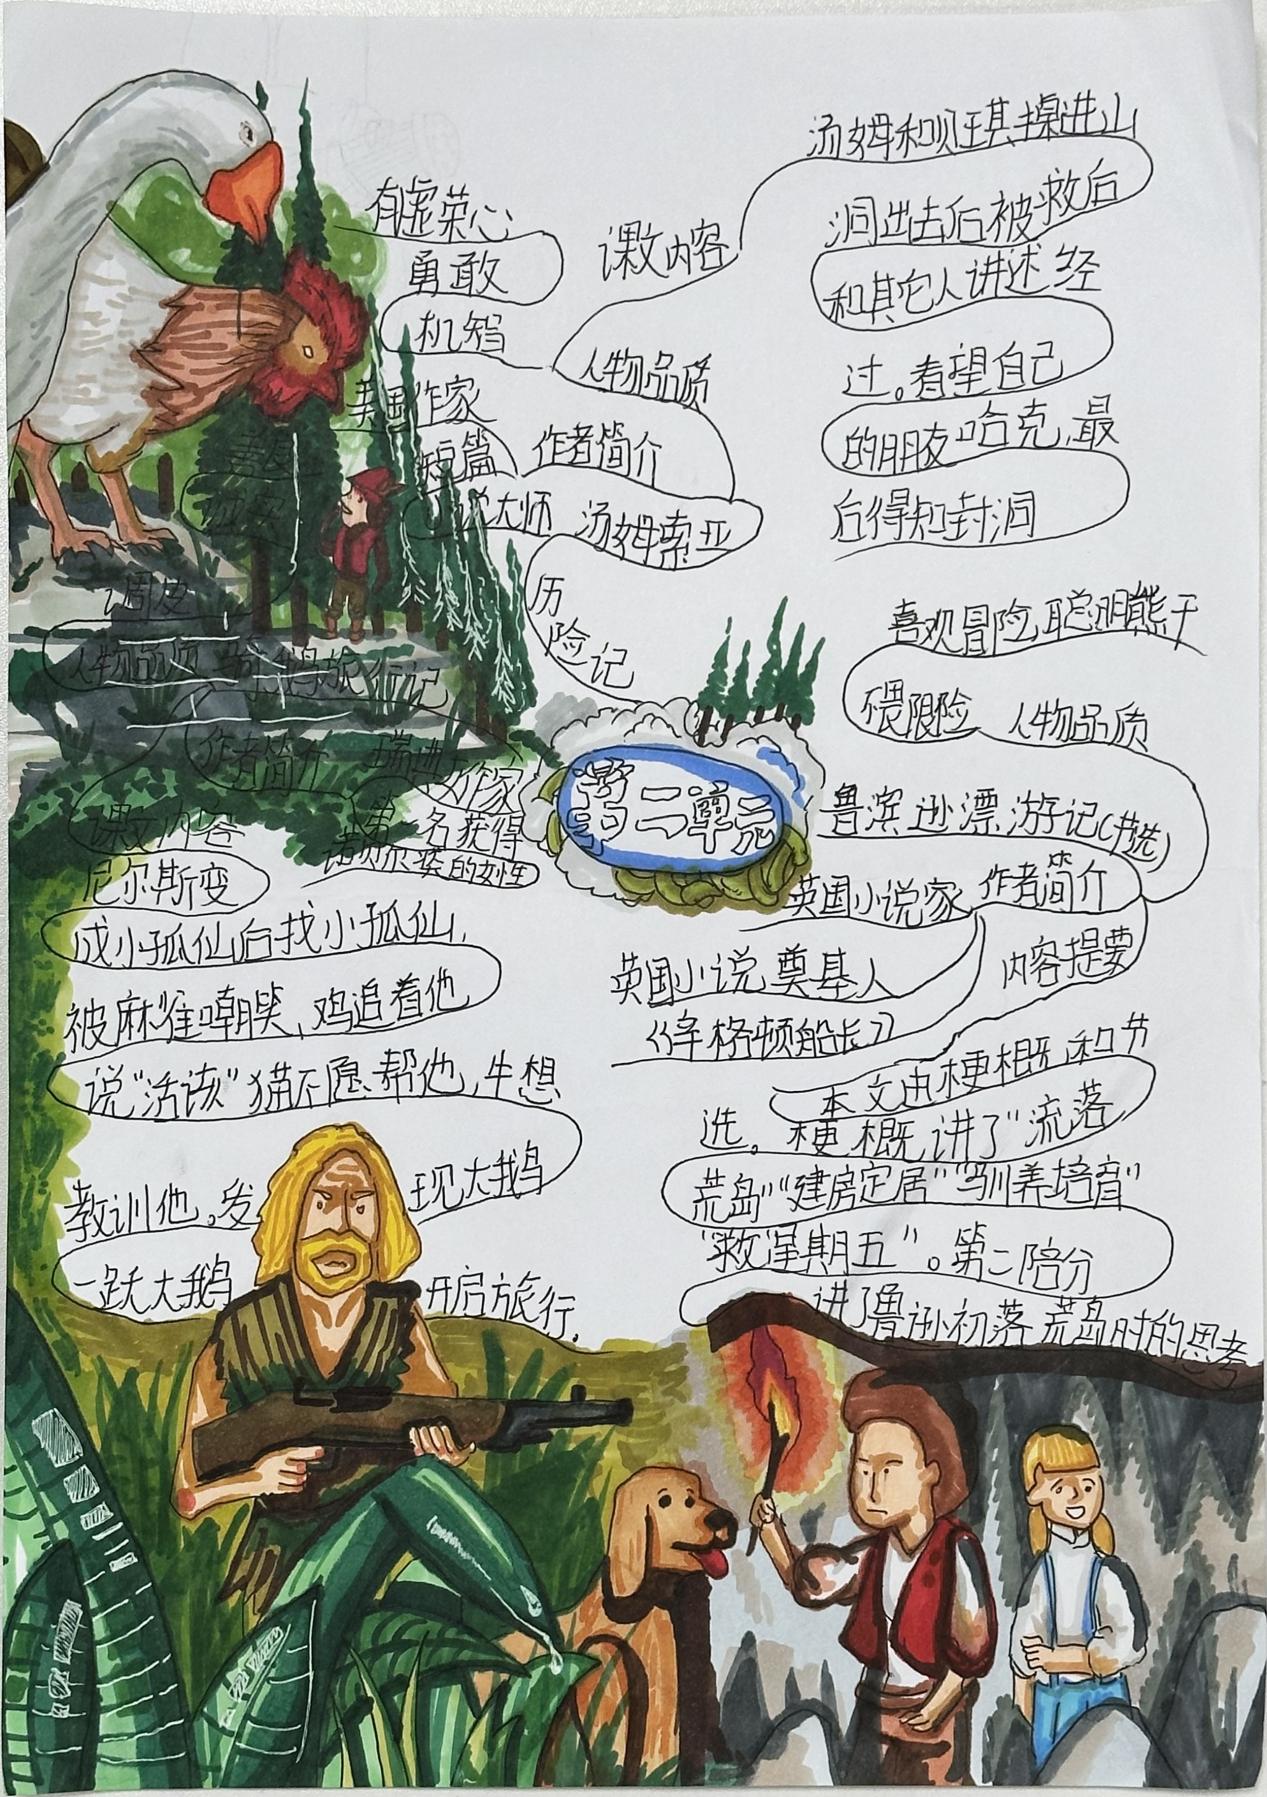 第二单元
汤姆索亚
历
险记
课文内容
汤姆和贝琪操进山
洞出去后被救后
和其它人讲述经
过。看望自己
的朋友哈克,最
后得知封洞
人物品质
有虚荣心
勇敢
机智
作者简介
美国作家
短篇
小说大师
鲁滨逊漂游记(节选)
人物品质
喜欢冒险,聪明熊干
喂限险
作者简介
英国小说家
英国小说奠基人
《辛格顿船长》
内容提要
本文由梗概和节
选。梗概讲了“流落
荒岛”“建房定居”“驯养培育”
“救星期五”。第二陪分
讲了鲁孙初落荒岛时的思考
骑鹅旅行记
人物品质
调皮
善良
作者简介
瑞典女作家
第一名获得
诺贝尔奖的女性
课文内容
尼尔斯变
成小孤仙后找小孤仙,
被麻雀嘲笑,鸡追着他
说“活该”猫不愿帮他,牛想
教训他。发现大鹅
一跃大鹅开启旅行.